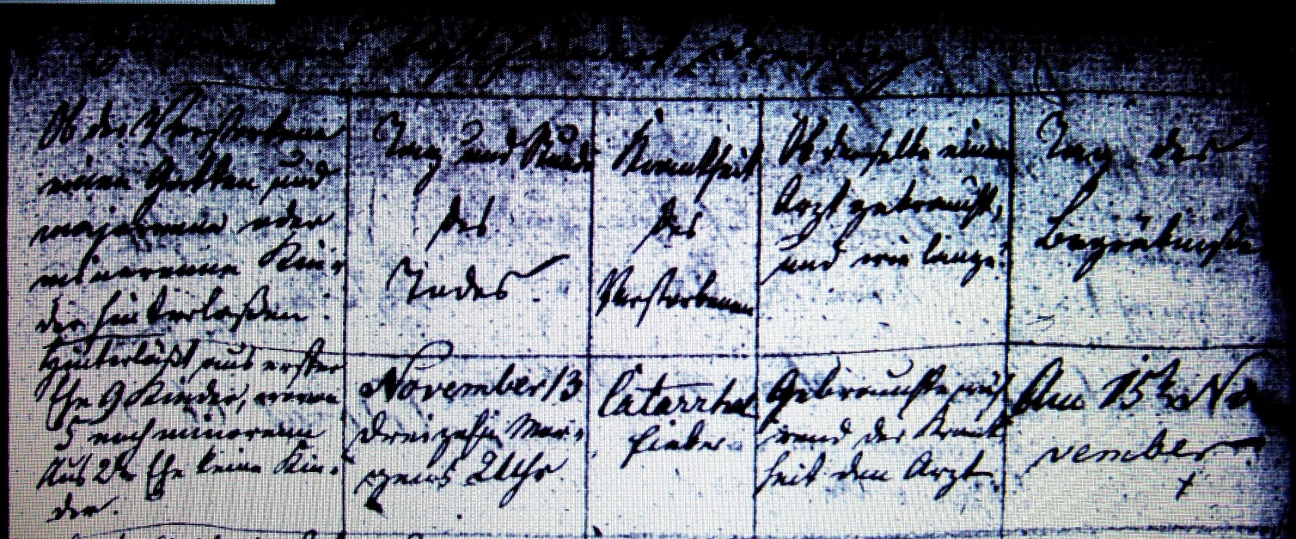 Ob der Verstorbene
einen Gatten und
majorenne oder
minorenne Kin-
der hinterlaßen
Tag und Stunde
des
Todes
Krankheit
des
Verstorbenen
Ob derselbe einen
Arzt gebraucht,
und wie lange?
Tag des
Begräbnißes
Hinterläßt aus erster
Ehe 9 Kinder, wovon
5 noch minorenn
Aus 2te Ehe keine Kin-
der.
November 13
dreizehn Mor-
gens 2 Uhr
Catarrhal
fieber
Gebrauchte wäh
rend der Krank
heit den Arzt
Am 15t No
vember